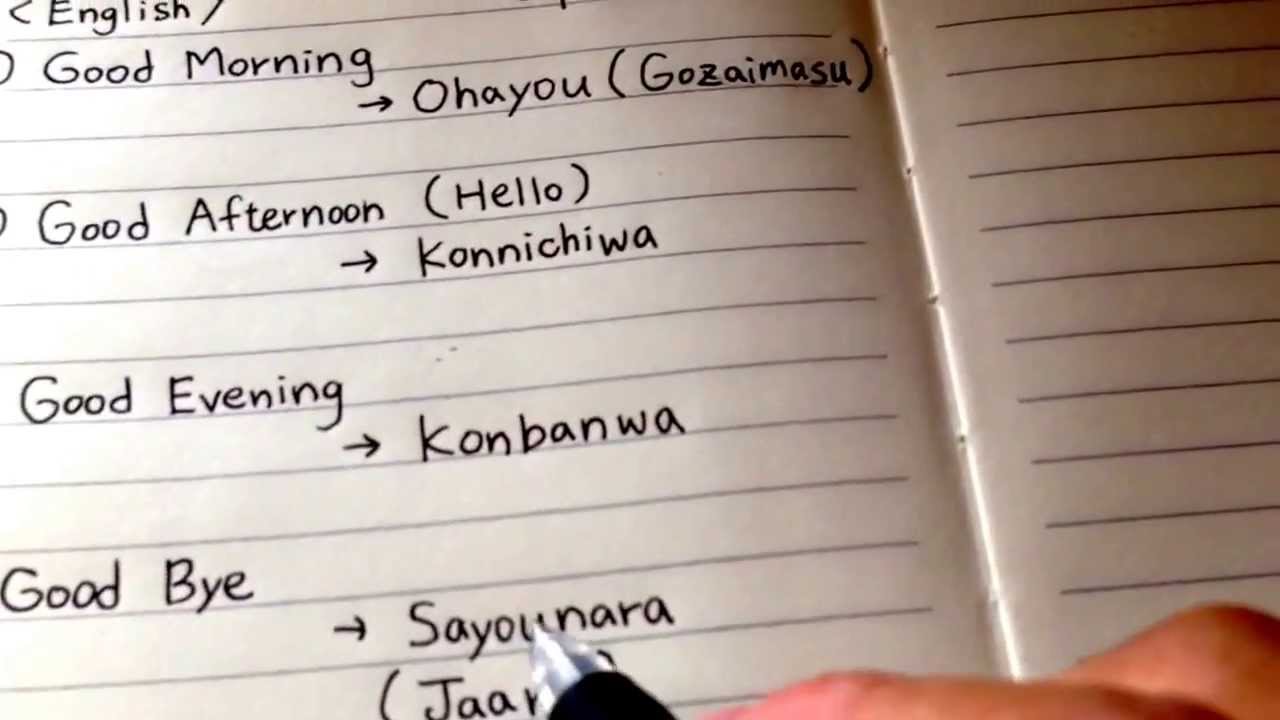 < English /
Good Morning
→ Ohayou (Gozaimasu)
Good Afternoon (Hello)
→ Konnichiwa
Good Evening
→ Konbanwa
Good Bye
→ Sayounara